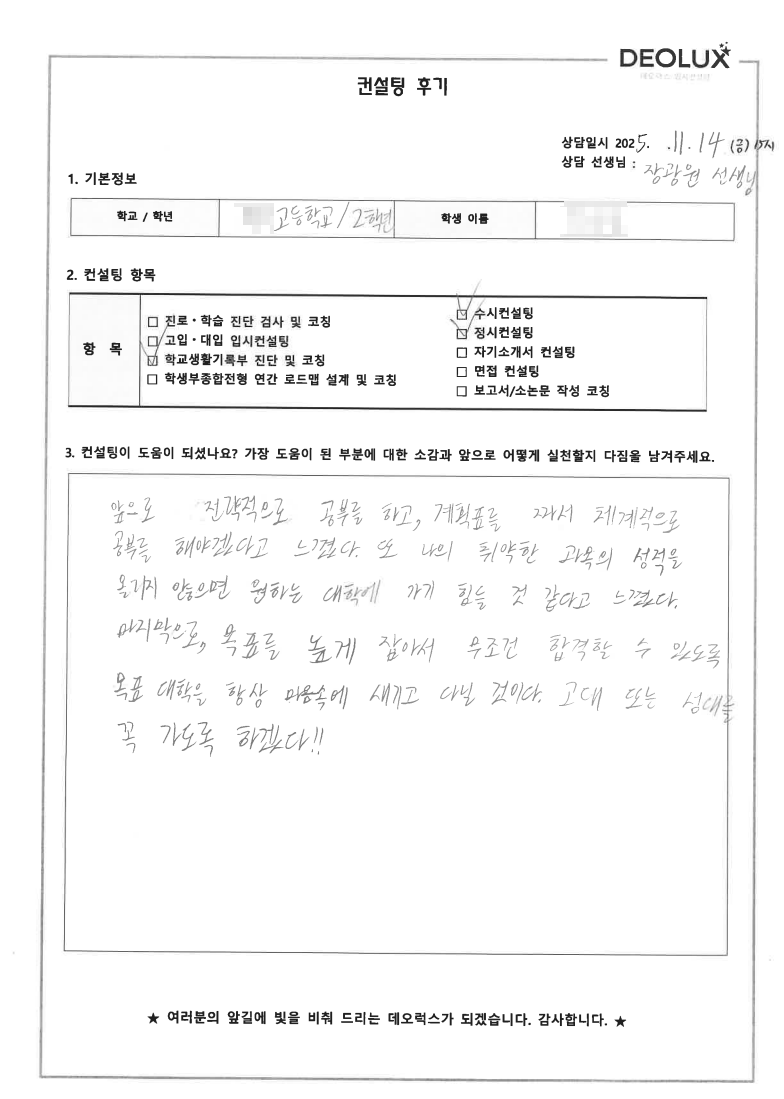 DEOLUX
데오럭스 입시컨설팅
컨설팅 후기
상담일시 2025. .11.14 (금) 15시
상담 선생님 : 장광원 선생님
1. 기본정보
학교 / 학년 고등학교/2학년 학생 이름
2. 컨설팅 항목
항 목
□ 진로·학습 진단 검사 및 코칭
□ 고입·대입 입시컨설팅
☑ 학교생활기록부 진단 및 코칭
□ 학생부종합전형 연간 로드맵 설계 및 코칭
☑ 수시컨설팅
☑ 정시컨설팅
□ 자기소개서 컨설팅
□ 면접 컨설팅
□ 보고서/소논문 작성 코칭
3. 컨설팅이 도움이 되셨나요? 가장 도움이 된 부분에 대한 소감과 앞으로 어떻게 실천할지 다짐을 남겨주세요.
앞으로 전략적으로 공부를 하고, 계획표를 짜서 체계적으로
공부를 해야겠다고 느꼈다. 또 나의 취약한 과목의 성적을
올리지 않으면 원하는 대학에 가기 힘들 것 같다고 느꼈다.
마지막으로, 목표를 높게 잡아서 무조건 합격할 수 있도록
목표 대학을 항상 마음속에 새기고 다닐 것이다. 고대 또는 성대를
꼭 가도록 하겠다!!
★ 여러분의 앞길에 빛을 비춰 드리는 데오럭스가 되겠습니다. 감사합니다. ★